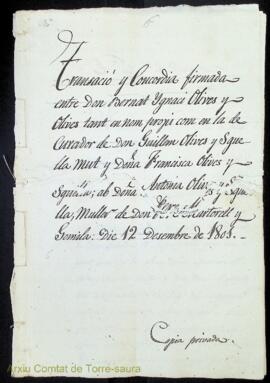 Transació y Concordia firmada
entre don Bernat Ygnaci Olives y
Olives tant en nom propi com en la de
Curador de don Guillem Olives y Sque
lla mut y doña Francisca Olives y
Squella; ab Doña Antonia Olives y Sque
lla, Muller de don Martorell y
Gomila: Die 12 Desembre de 1803.
Copia privada.
Arxiu Comtat de Torre-saura